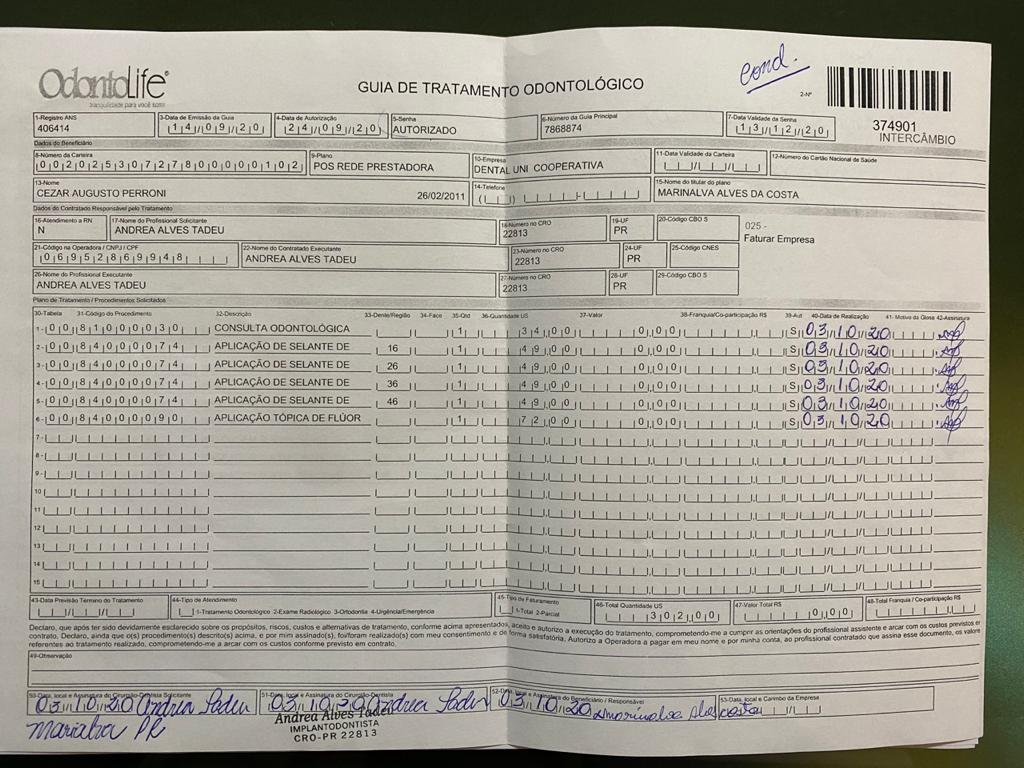 OdontoLife®
tranquilidade para você sorrir
GUIA DE TRATAMENTO ODONTOLÓGICO
cond.
2-Nº
374901
INTERCÂMBIO
1-Registro ANS
406414
3-Data de Emissão da Guia
14/09/20
4-Data de Autorização
24/09/20
5-Senha
AUTORIZADO
6-Número da Guia Principal
7868874
7-Data Validade da Senha
13/12/20
Dados do Beneficiário
8-Número da Carteira
00202530727800000102
9-Plano
POS REDE PRESTADORA
10-Empresa
DENTAL UNI COOPERATIVA
11-Data Validade da Carteira
12-Número do Cartão Nacional de Saúde
13-Nome
CEZAR AUGUSTO PERRONI 26/02/2011
14-Telefone
15-Nome do titular do plano
MARINALVA ALVES DA COSTA
Dados do Contratado Responsável pelo Tratamento
16-Atendimento a RN
N
17-Nome do Profissional Solicitante
ANDREA ALVES TADEU
18-Número no CRO
22813
19-UF
PR
20-Código CBO S
025 -
Faturar Empresa
21-Código na Operadora / CNPJ / CPF
06952869948
22-Nome do Contratado Executante
ANDREA ALVES TADEU
23-Número no CRO
22813
24-UF
PR
25-Código CNES
26-Nome do Profissional Executante
ANDREA ALVES TADEU
27-Número no CRO
22813
28-UF
PR
29-Código CBO S
Plano de Tratamento / Procedimentos Solicitados
30-Tabela 31-Código do Procedimento 32-Descrição 33-Dente/Região 34-Face 35-Qtd 36-Quantidade US 37-Valor 38-Franquia/Co-participação R$ 39-Aut 40-Data de Realização 41- Motivo da Glosa 42-Assinatura
1- 00 81000030 CONSULTA ODONTOLÓGICA 1 34,00 0,00 S 03/10/20
2- 00 84000074 APLICAÇÃO DE SELANTE DE 16 1 49,00 0,00 S 03/10/20
3- 00 84000074 APLICAÇÃO DE SELANTE DE 26 1 49,00 0,00 S 03/10/20
4- 00 84000074 APLICAÇÃO DE SELANTE DE 36 1 49,00 0,00 S 03/10/20
5- 00 84000074 APLICAÇÃO DE SELANTE DE 46 1 49,00 0,00 S 03/10/20
6- 00 84000090 APLICAÇÃO TÓPICA DE FLÚOR 1 72,00 0,00 S 03/10/20
7-
8-
9-
10
11
12
13
14
15
43-Data Previsão Término do Tratamento
44-Tipo de Atendimento
1-Tratamento Odontológico 2-Exame Radiológico 3-Ortodontia 4-Urgência/Emergência
45-Tipo de Faturamento
1-Total 2-Parcial
46-Total Quantidade US
302,00
47-Valor Total R$
0,00
48-Total Franquia / Co-participação R$
Declaro, que após ter sido devidamente esclarecido sobre os propósitos, riscos, custos e alternativas de tratamento, conforme acima apresentados, aceito e autorizo a execução do tratamento, comprometendo-me a cumprir as orientações do profissional assistente e arcar com os custos previstos em
contrato. Declaro, ainda que o(s) procedimento(s) descrito(s) acima, e por mim assinado(s), foi/foram realizado(s) com meu consentimento e de forma satisfatória. Autorizo a Operadora a pagar em meu nome e por minha conta, ao profissional contratado que assina esse documento, os valores
referentes ao tratamento realizado, comprometendo-me a arcar com os custos conforme previsto em contrato.
49-Observação
50-Data, local e Assinatura do Cirurgião-Dentista Solicitante
03/10/20 Andrea Tadeu
Marialva PR
51-Data, local e Assinatura do Cirurgião-Dentista
03/10/20 Andrea Tadeu
Andrea Alves Tadeu
IMPLANTODONTISTA
CRO-PR 22813
52-Data, local e Assinatura do Beneficiário / Responsável
03/10/20
53-Data, local e Carimbo da Empresa